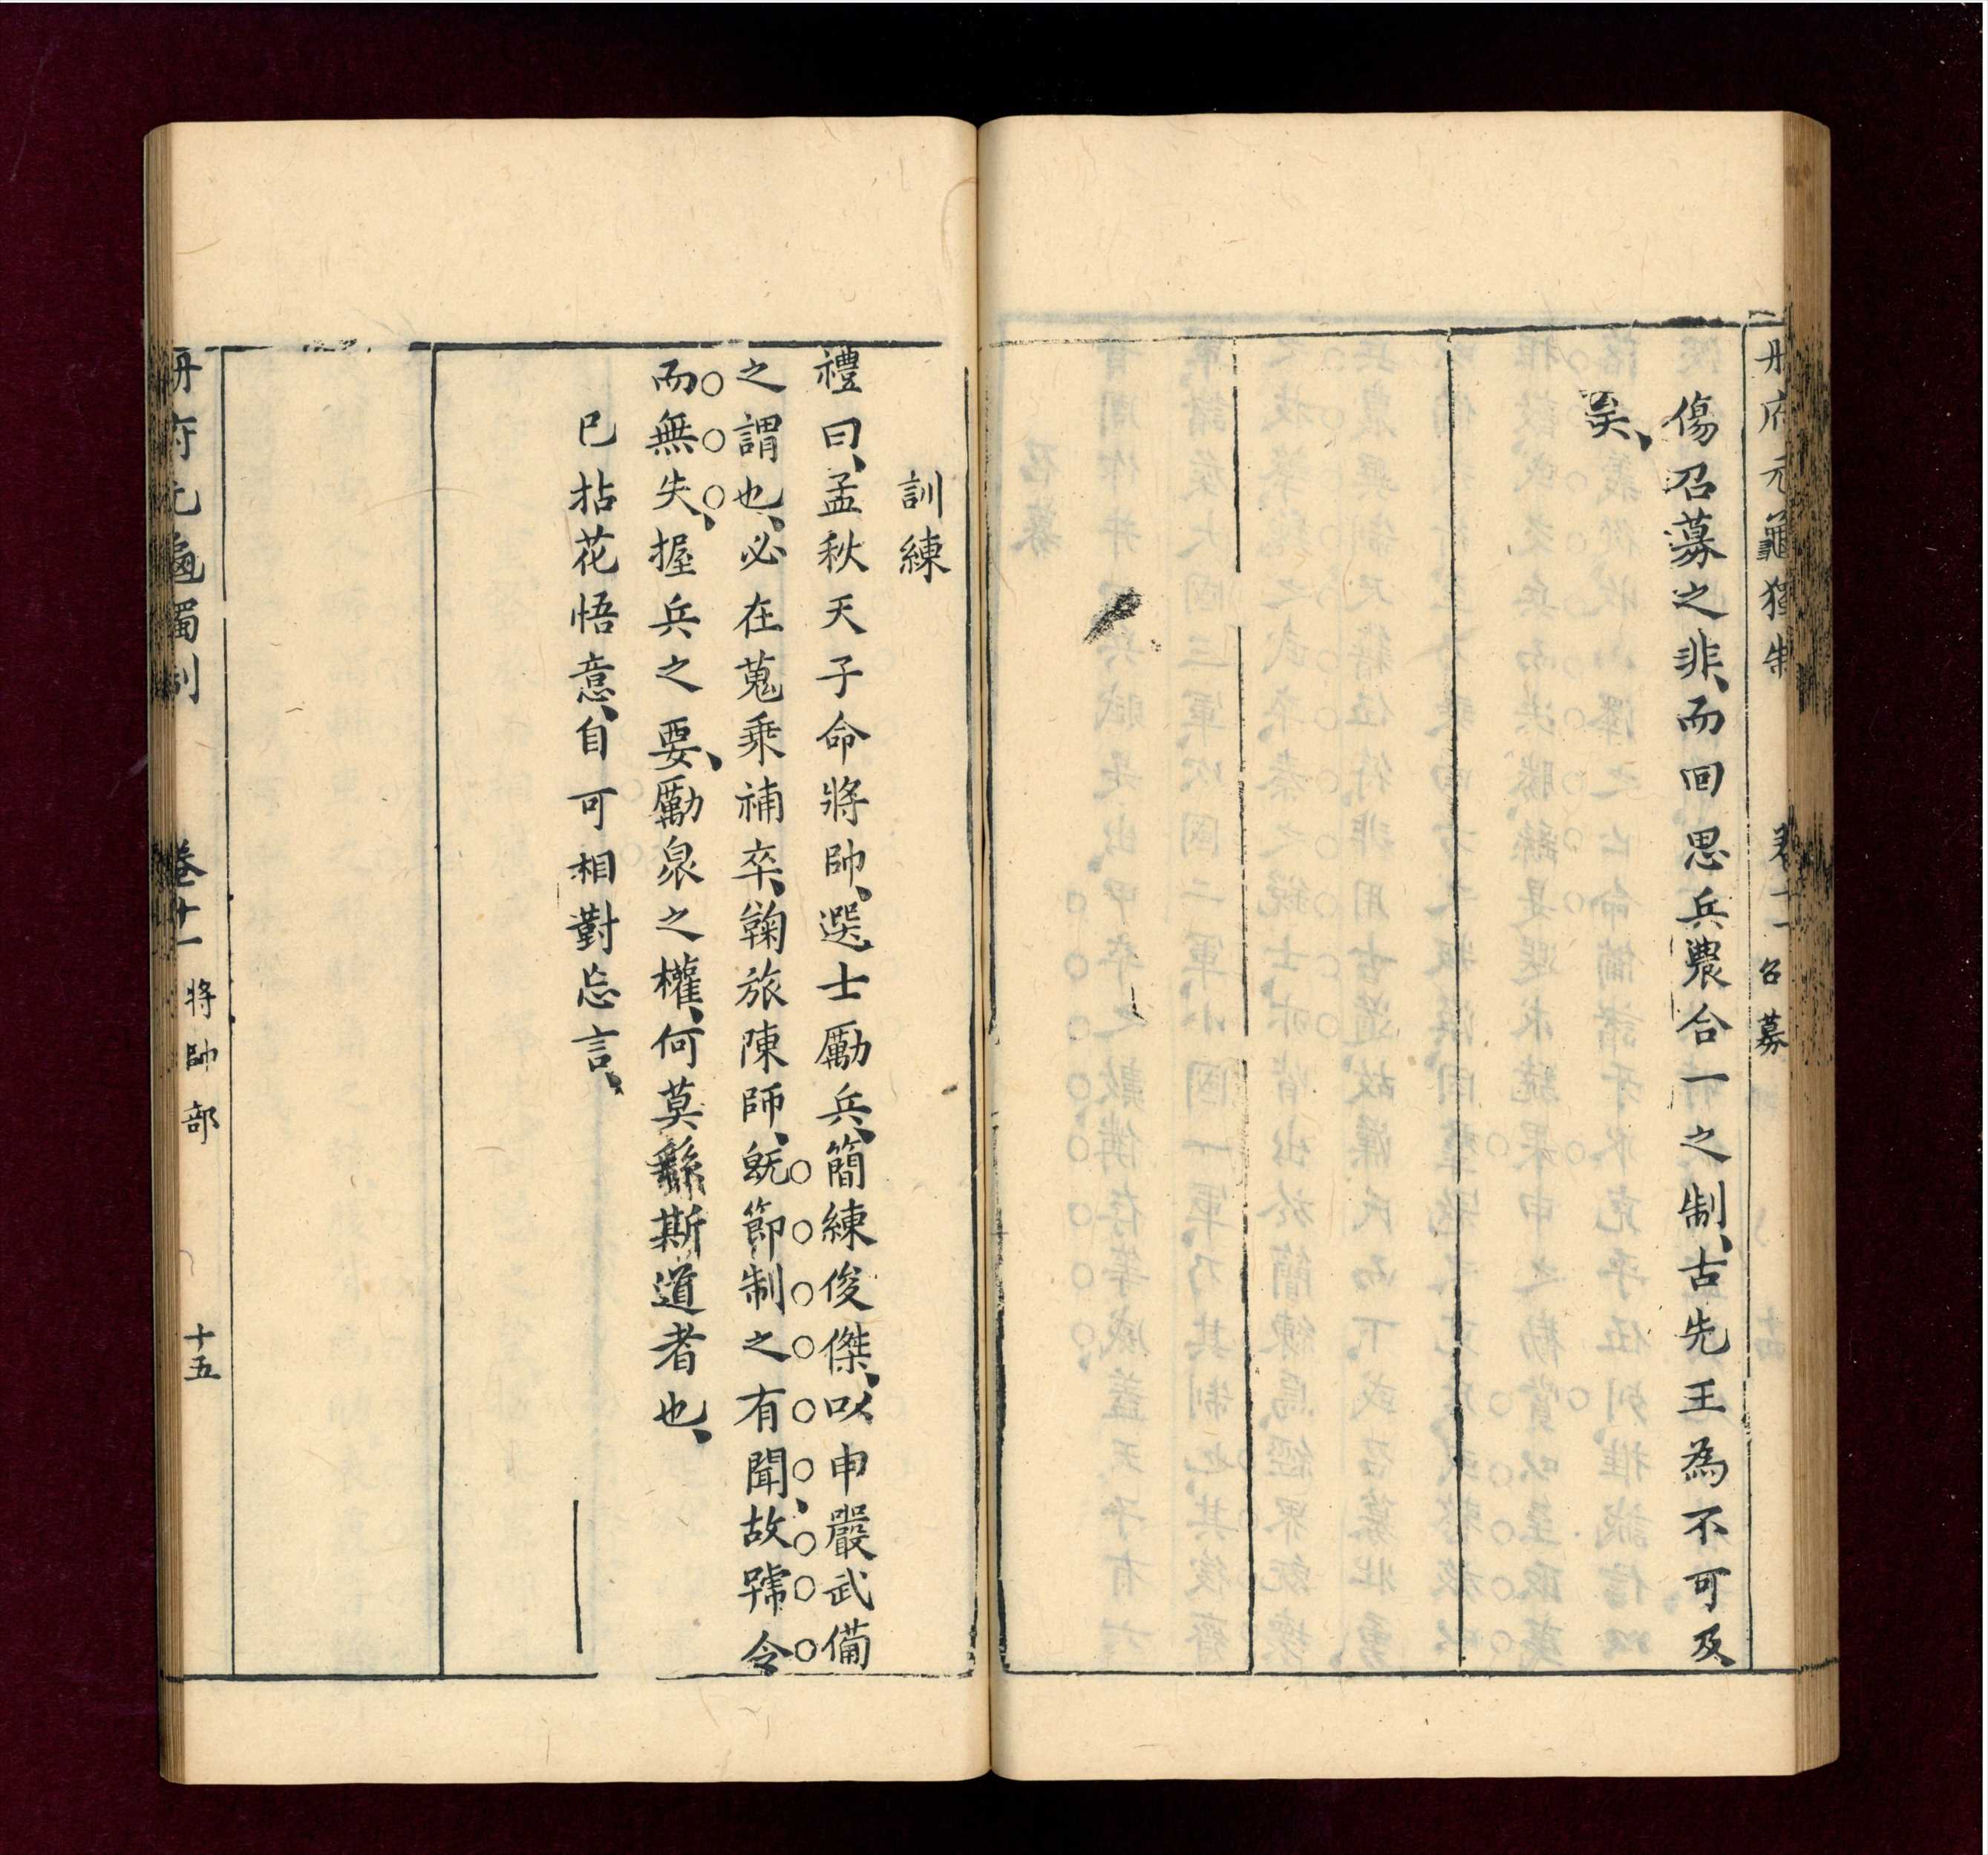 冊府元龜獨制 卷十一 召募
傷召募之非、而回思兵農合一之制、古先王為不可及
矣、
訓練
禮曰、孟秋天子命將帥、選士勵兵、簡練俊傑、以申嚴武備
之謂也、必在蒐乘補卒、鞠旅陳師、旣節制之有聞、故號令
而無失、握兵之要、勵衆之權、何莫繇斯道者也、
已拈花悟意、自可相對忘言、
冊府元龜獨制 卷十一 將帥部 十五